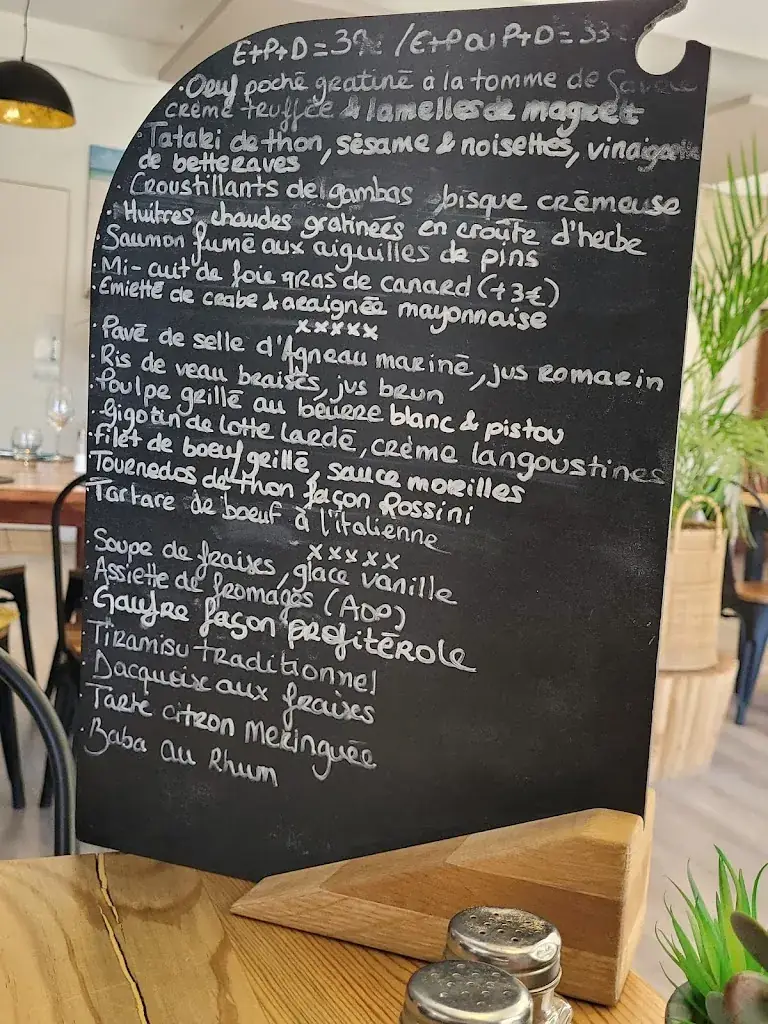 E+P+D = 39€ / E+P ou P+D = 33
• Oeuf poché gratiné à la tomme de Savoie
crème truffée & lamelles de magret
• Tataki de thon, sésame & noisettes, vinaigrette
de betteraves
• Croustillants de gambas bisque crèmeuse
• Huitres chaudes gratinées en croûte d'herbe
• Saumon fumé aux aiguilles de pins
• Mi-cuit de foie gras de canard (+3€)
• Emietté de crabe & araignée mayonnaise
xxxxx
• Pavé de selle d'Agneau mariné, jus romarin
• Ris de veau braisés, jus brun
• Poulpe grillé au beurre blanc & pistou
• Gigotin de lotte lardé, crème langoustines
• Filet de boeuf grillé, sauce morilles
Tournedos de thon façon Rossini
• Tartare de boeuf à l'italienne
xxxxx
• Soupe de fraises, glace vanille
• Assiette de fromages (AOP)
• Gaufre façon profitérole
• Tiramisu traditionnel
• Dacquoix aux fraises
• Tarte citron meringuée
• Baba au Rhum